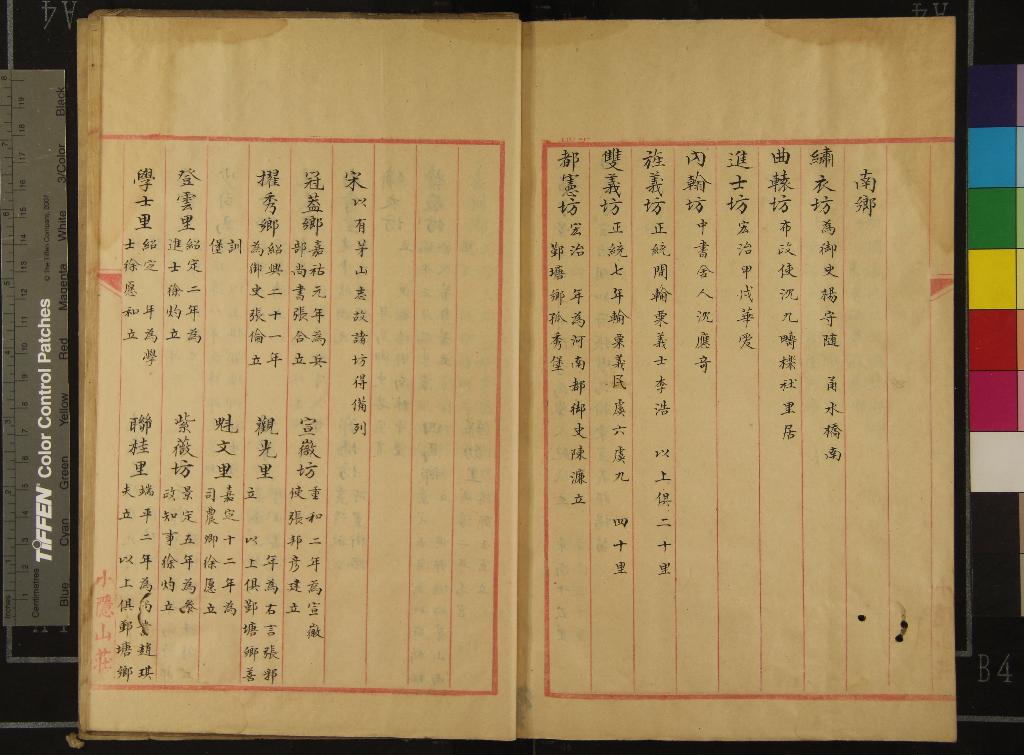 南鄉
繡衣坊為御史楊守随 甬水橋南
曲轅坊布政使沉九疇樸社里居
進士坊宏治甲戌華爱
內翰坊中書舍人沉應奇
旌義坊正統間輸粟義士李浩 以上俱二十里
雙義坊正統七年輸粟義民虞六虞九 四十里
都憲坊宏治 年為河南都御史陳濂立
鄞塘鄉孤秀堡
宋以有茅山志故諸坊得備列
冠蓋鄉嘉祜元年為兵
部尚書張合立
宣徽坊重和二年為宣徽
使張邦彦建立
擢秀鄉紹興二十一年
為御史張倫立
觀光里 年為右言張郭
立 以上俱鄞塘鄉善
訓
堡
魁文里嘉定十二年為
司農卿徐愿立
登雲里紹定二年為
進士徐灼立
紫薇坊景定五年為叅
政知事徐灼立
學士里紹定 年為學
士徐愿和立
聯桂里端平二年為尚書趙琪
夫立 以上俱鄞塘鄉
小隱山莊
TIFFEN Color Control Patches
© The Tiffen Company, 2007
Centimetres
Inches
Blue
Cyan
Green
Yellow
Red
Magenta
White
3/Color
Black
A4
A4
B4